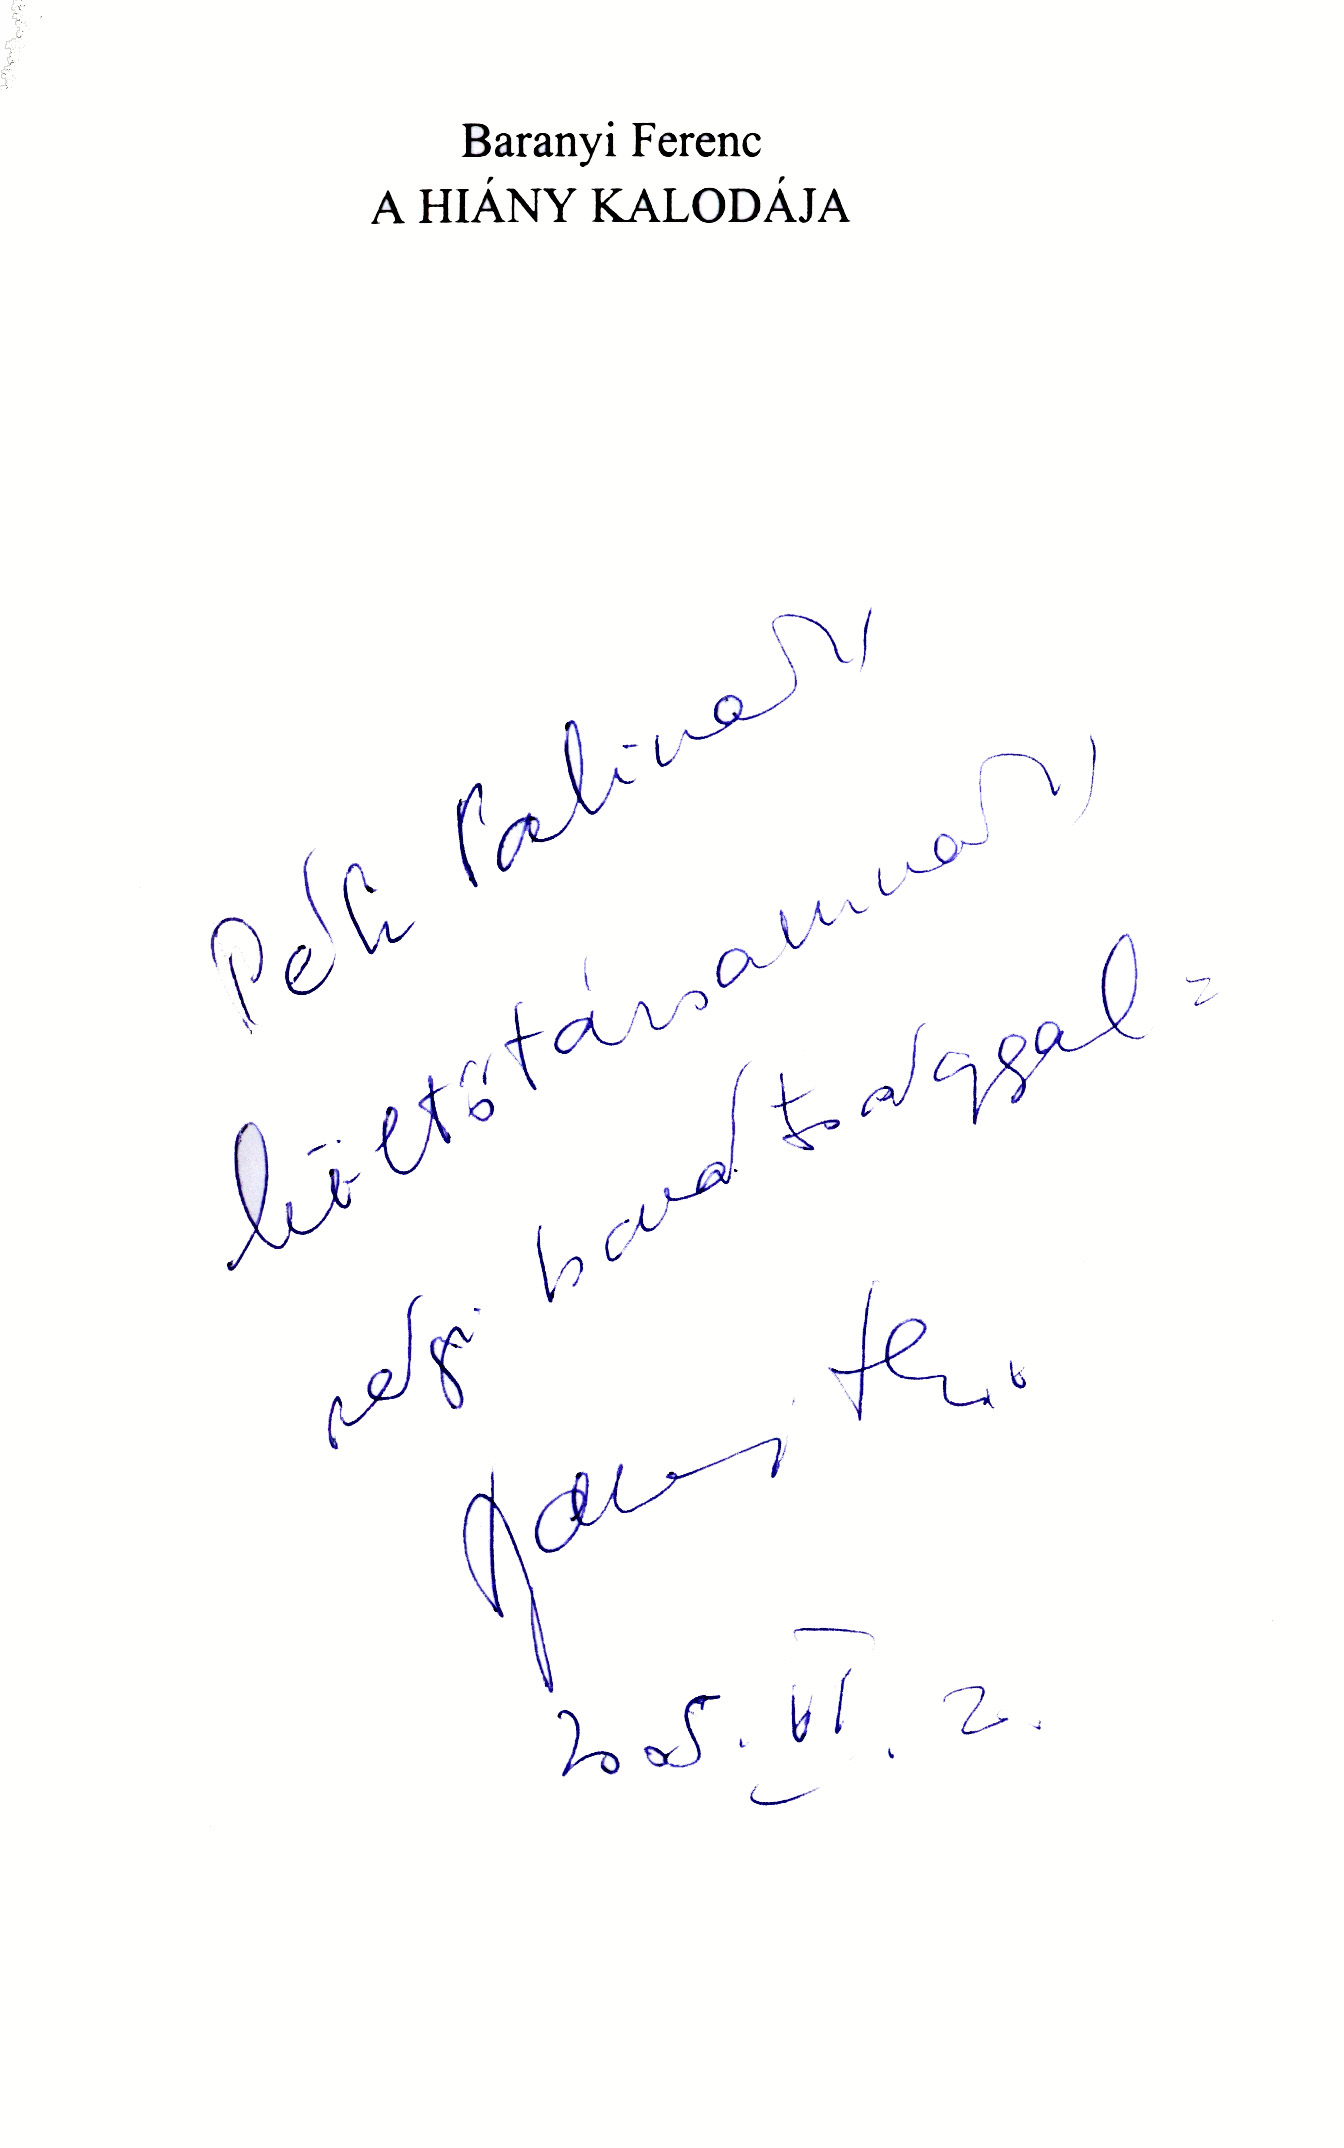 Baranyi Ferenc
A HIÁNY KALODÁJA
Palinak
költőtársamnak
régi barátsággal =
2005. VI. 2.